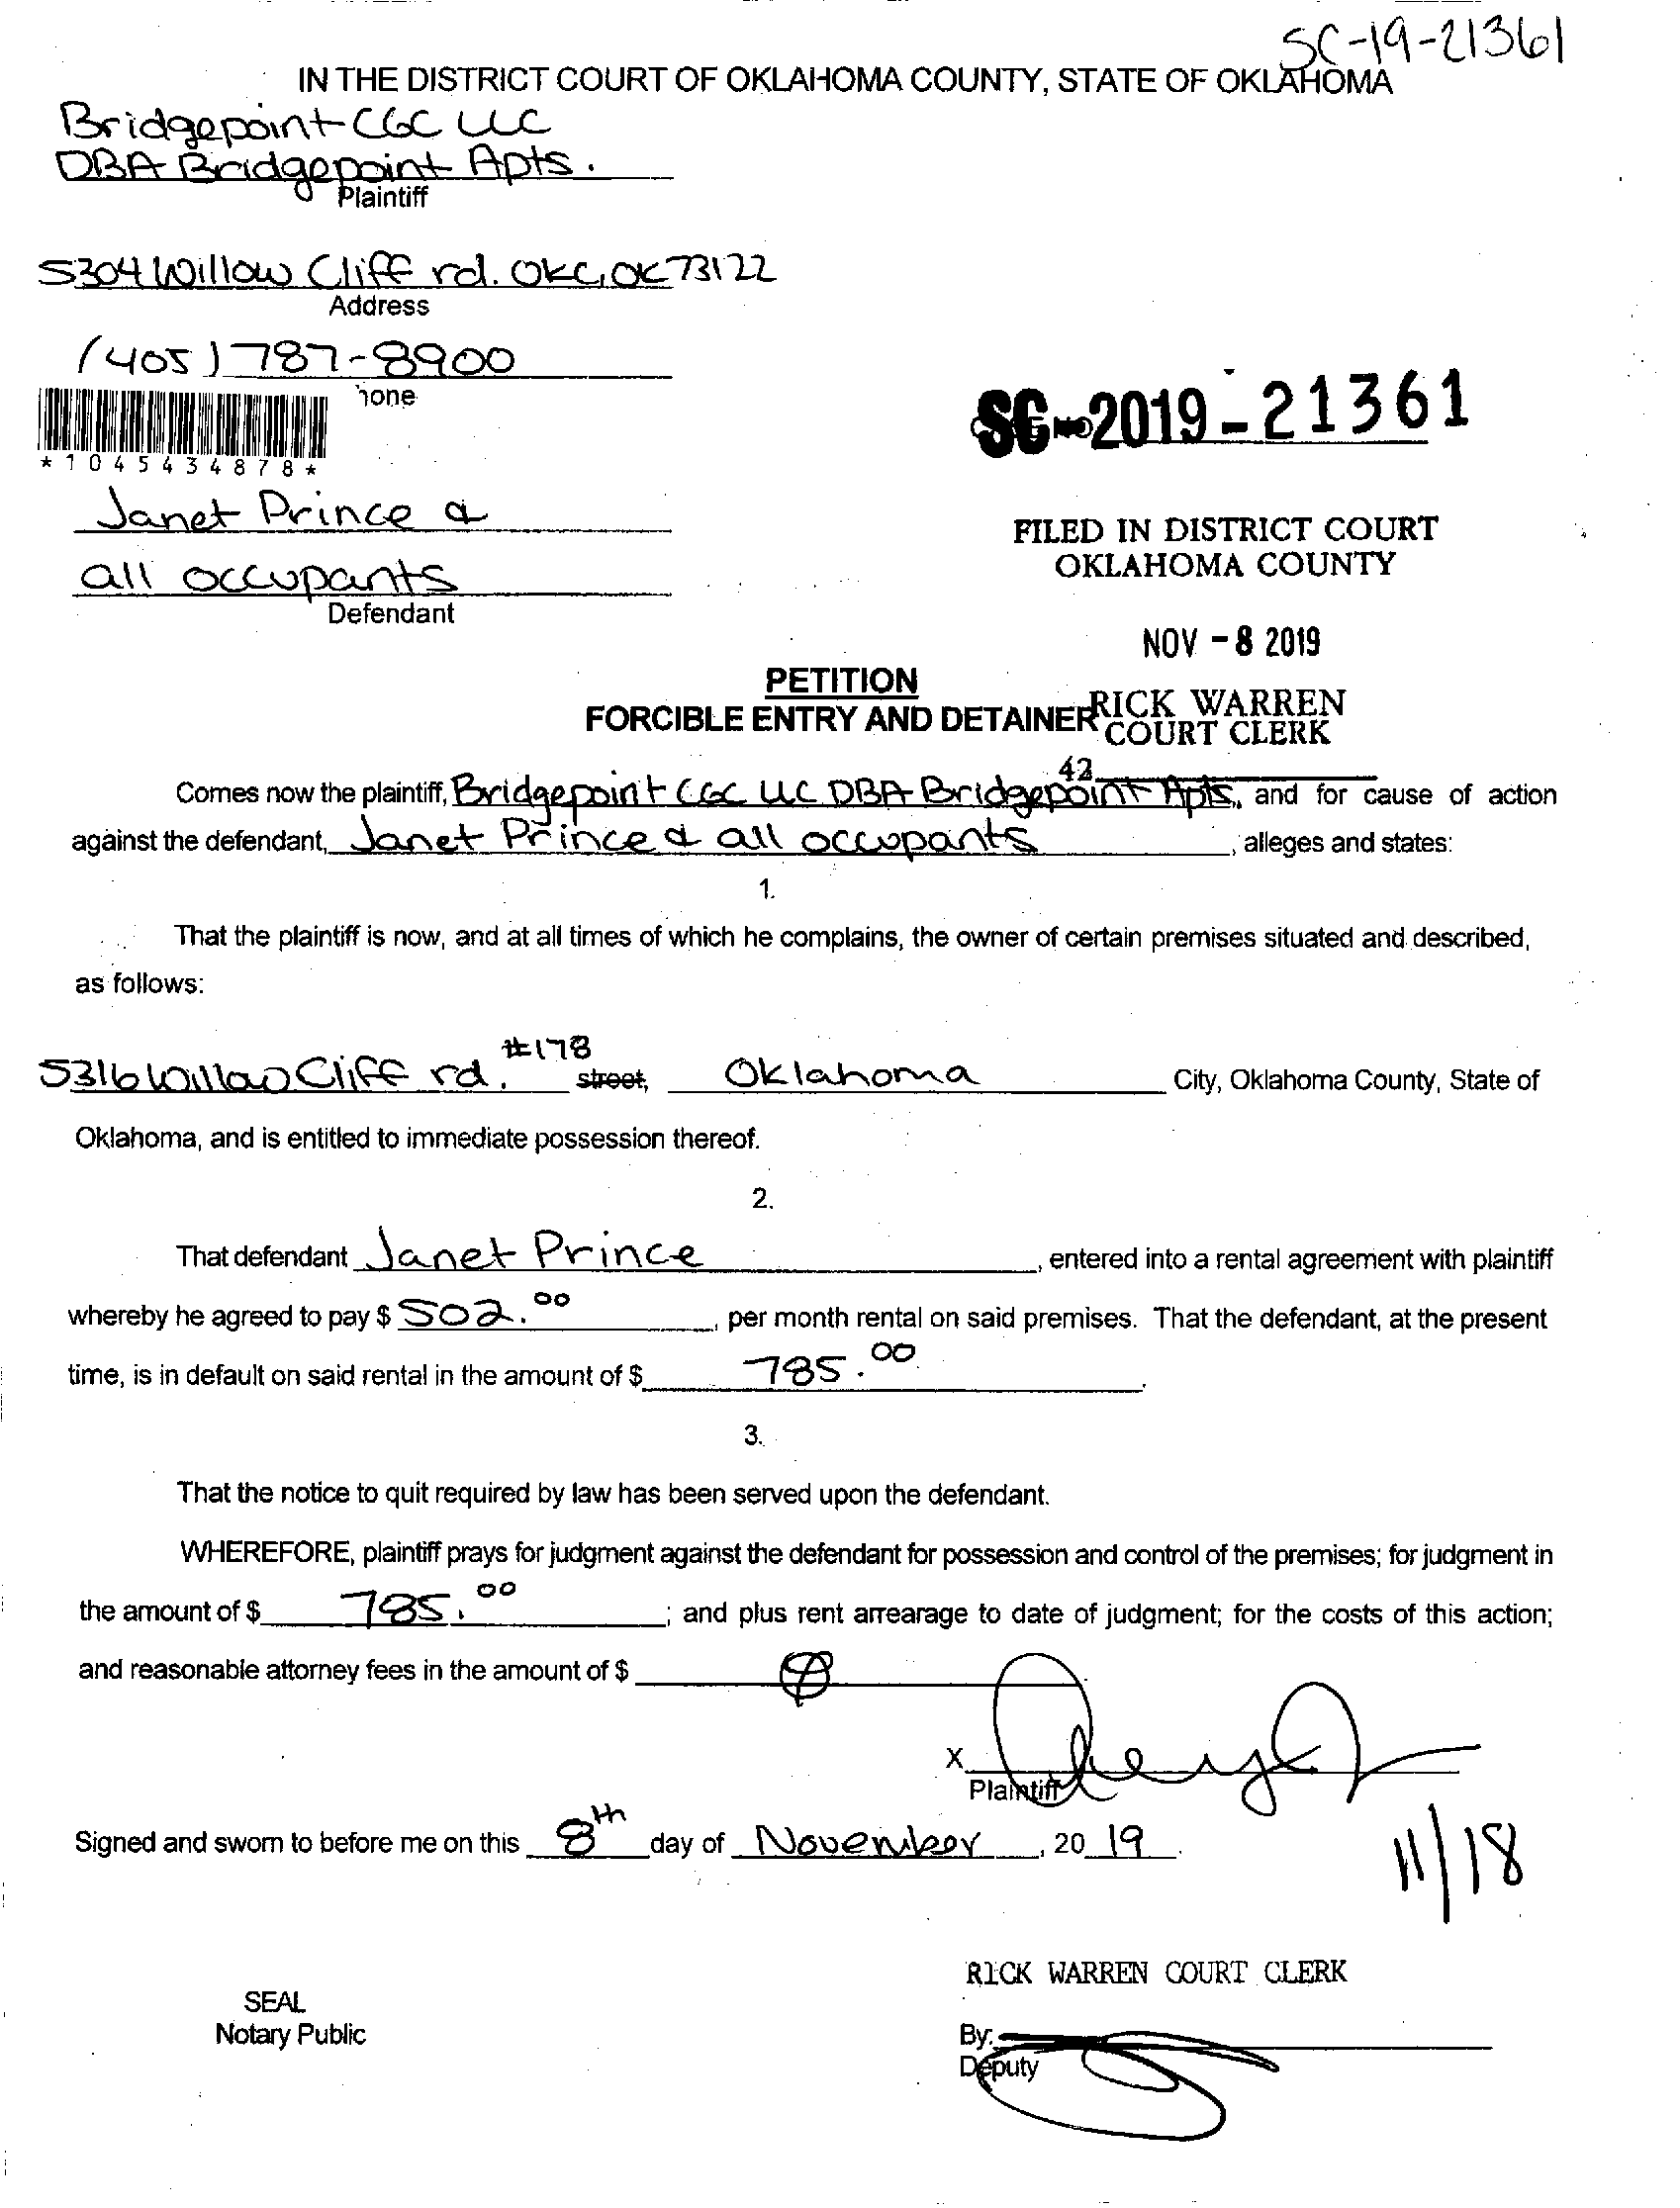 SC-19-21361
IN THE DISTRICT COURT OF OKLAHOMA COUNTY, STATE OF OKLAHOMA
Bridgepoint CGC LLC
DBA Bridgepoint Apts.
Plaintiff
5304 Willow Cliff rd. OKC, OK 73122
Address
(405) 787-8900
hone
*1045434878*
SC-2019-21361
Janet Prince &
all occupants
Defendant
FILED IN DISTRICT COURT
OKLAHOMA COUNTY
NOV - 8 2019
PETITION
FORCIBLE ENTRY AND DETAINER
RICK WARREN
COURT CLERK
42
Comes now the plaintiff, Bridgepoint CGC LLC DBA Bridgepoint Apts., and for cause of action
against the defendant, Janet Prince & all occupants, alleges and states:
1.
That the plaintiff is now, and at all times of which he complains, the owner of certain premises situated and described,
as follows:
5316 Willow Cliff rd. #178 street, Oklahoma City, Oklahoma County, State of
Oklahoma, and is entitled to immediate possession thereof.
2.
That defendant Janet Prince, entered into a rental agreement with plaintiff
whereby he agreed to pay $ 502.00, per month rental on said premises. That the defendant, at the present
time, is in default on said rental in the amount of $ 785.00.
3.
That the notice to quit required by law has been served upon the defendant.
WHEREFORE, plaintiff prays for judgment against the defendant for possession and control of the premises; for judgment in
the amount of $ 785.00; and plus rent arrearage to date of judgment; for the costs of this action;
and reasonable attorney fees in the amount of $
X
Plaintiff
Signed and sworn to before me on this 8th day of November, 20 19.
11/18
RICK WARREN COURT CLERK
SEAL
Notary Public
By:
Deputy